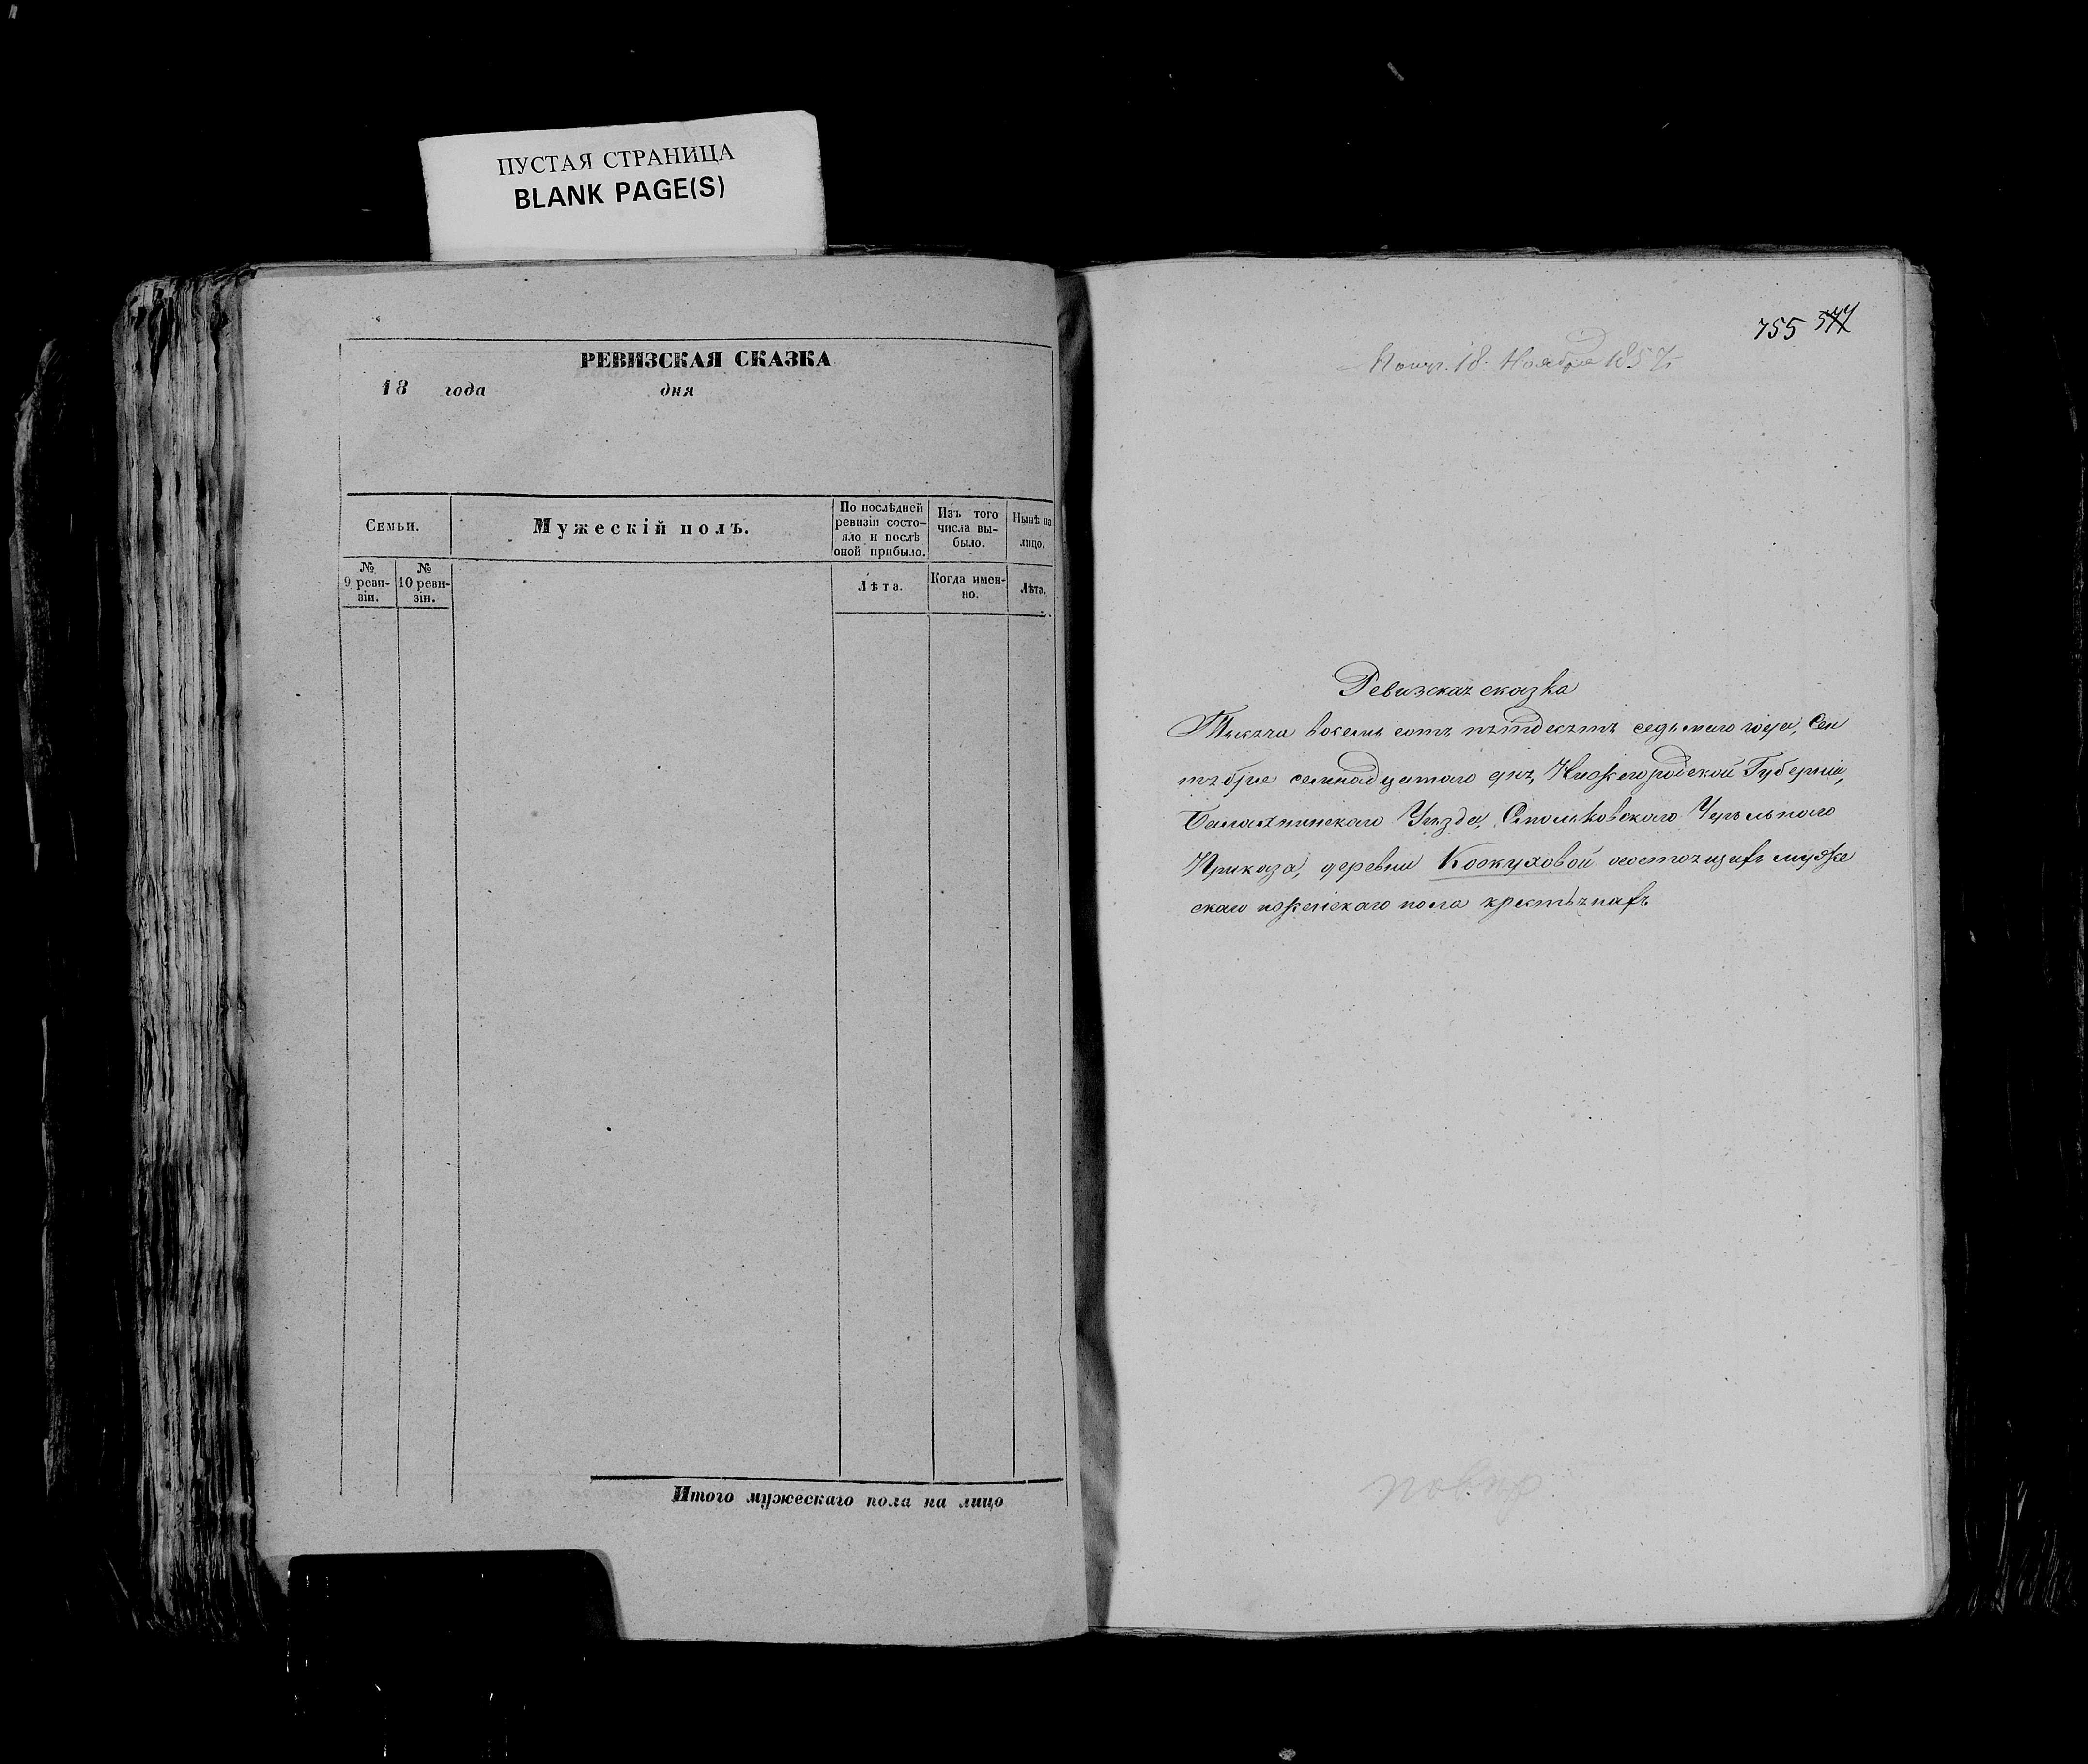 ПУСТАЯ СТРАНИЦА
BLANK PAGE(S)
РЕВИЗСКАЯ СКАЗКА
18 года дня
Семьи.
Мужескій полъ.
По послѣдней
ревизіи состо-
яло и послѣ
оной прибыло.
Изъ того
числа вы-
было.
Нынѣ на
лицо.
№
9 реви-
зіи.
№
10 реви-
зіи.
Лѣта.
Когда имен-
но.
Лѣта.
Итого мужескаго пола на лицо
755
18. Ноября 1857
Ревизская сказка
Тысяча восемь сотъ пятдесятъ седьмаго года, Сен
тября семнадцатаго дня, Нижегородской Губерніи,
Балахнинскаго Уѣзда, Смольковскаго Удѣльнаго
Приказа, деревни Кокуховой состоящихъ муже
скаго и женскаго пола крестьянахъ